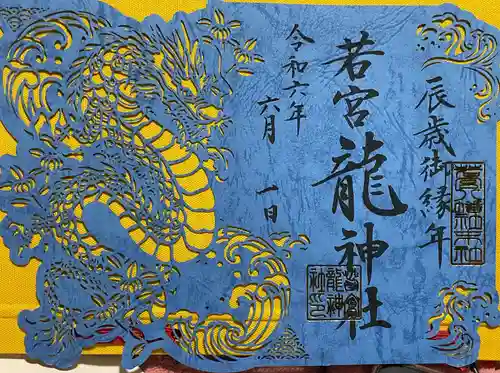 辰歳御縁年
若宮龍神社
令和六年
六月 一日
若宮
龍神
社印